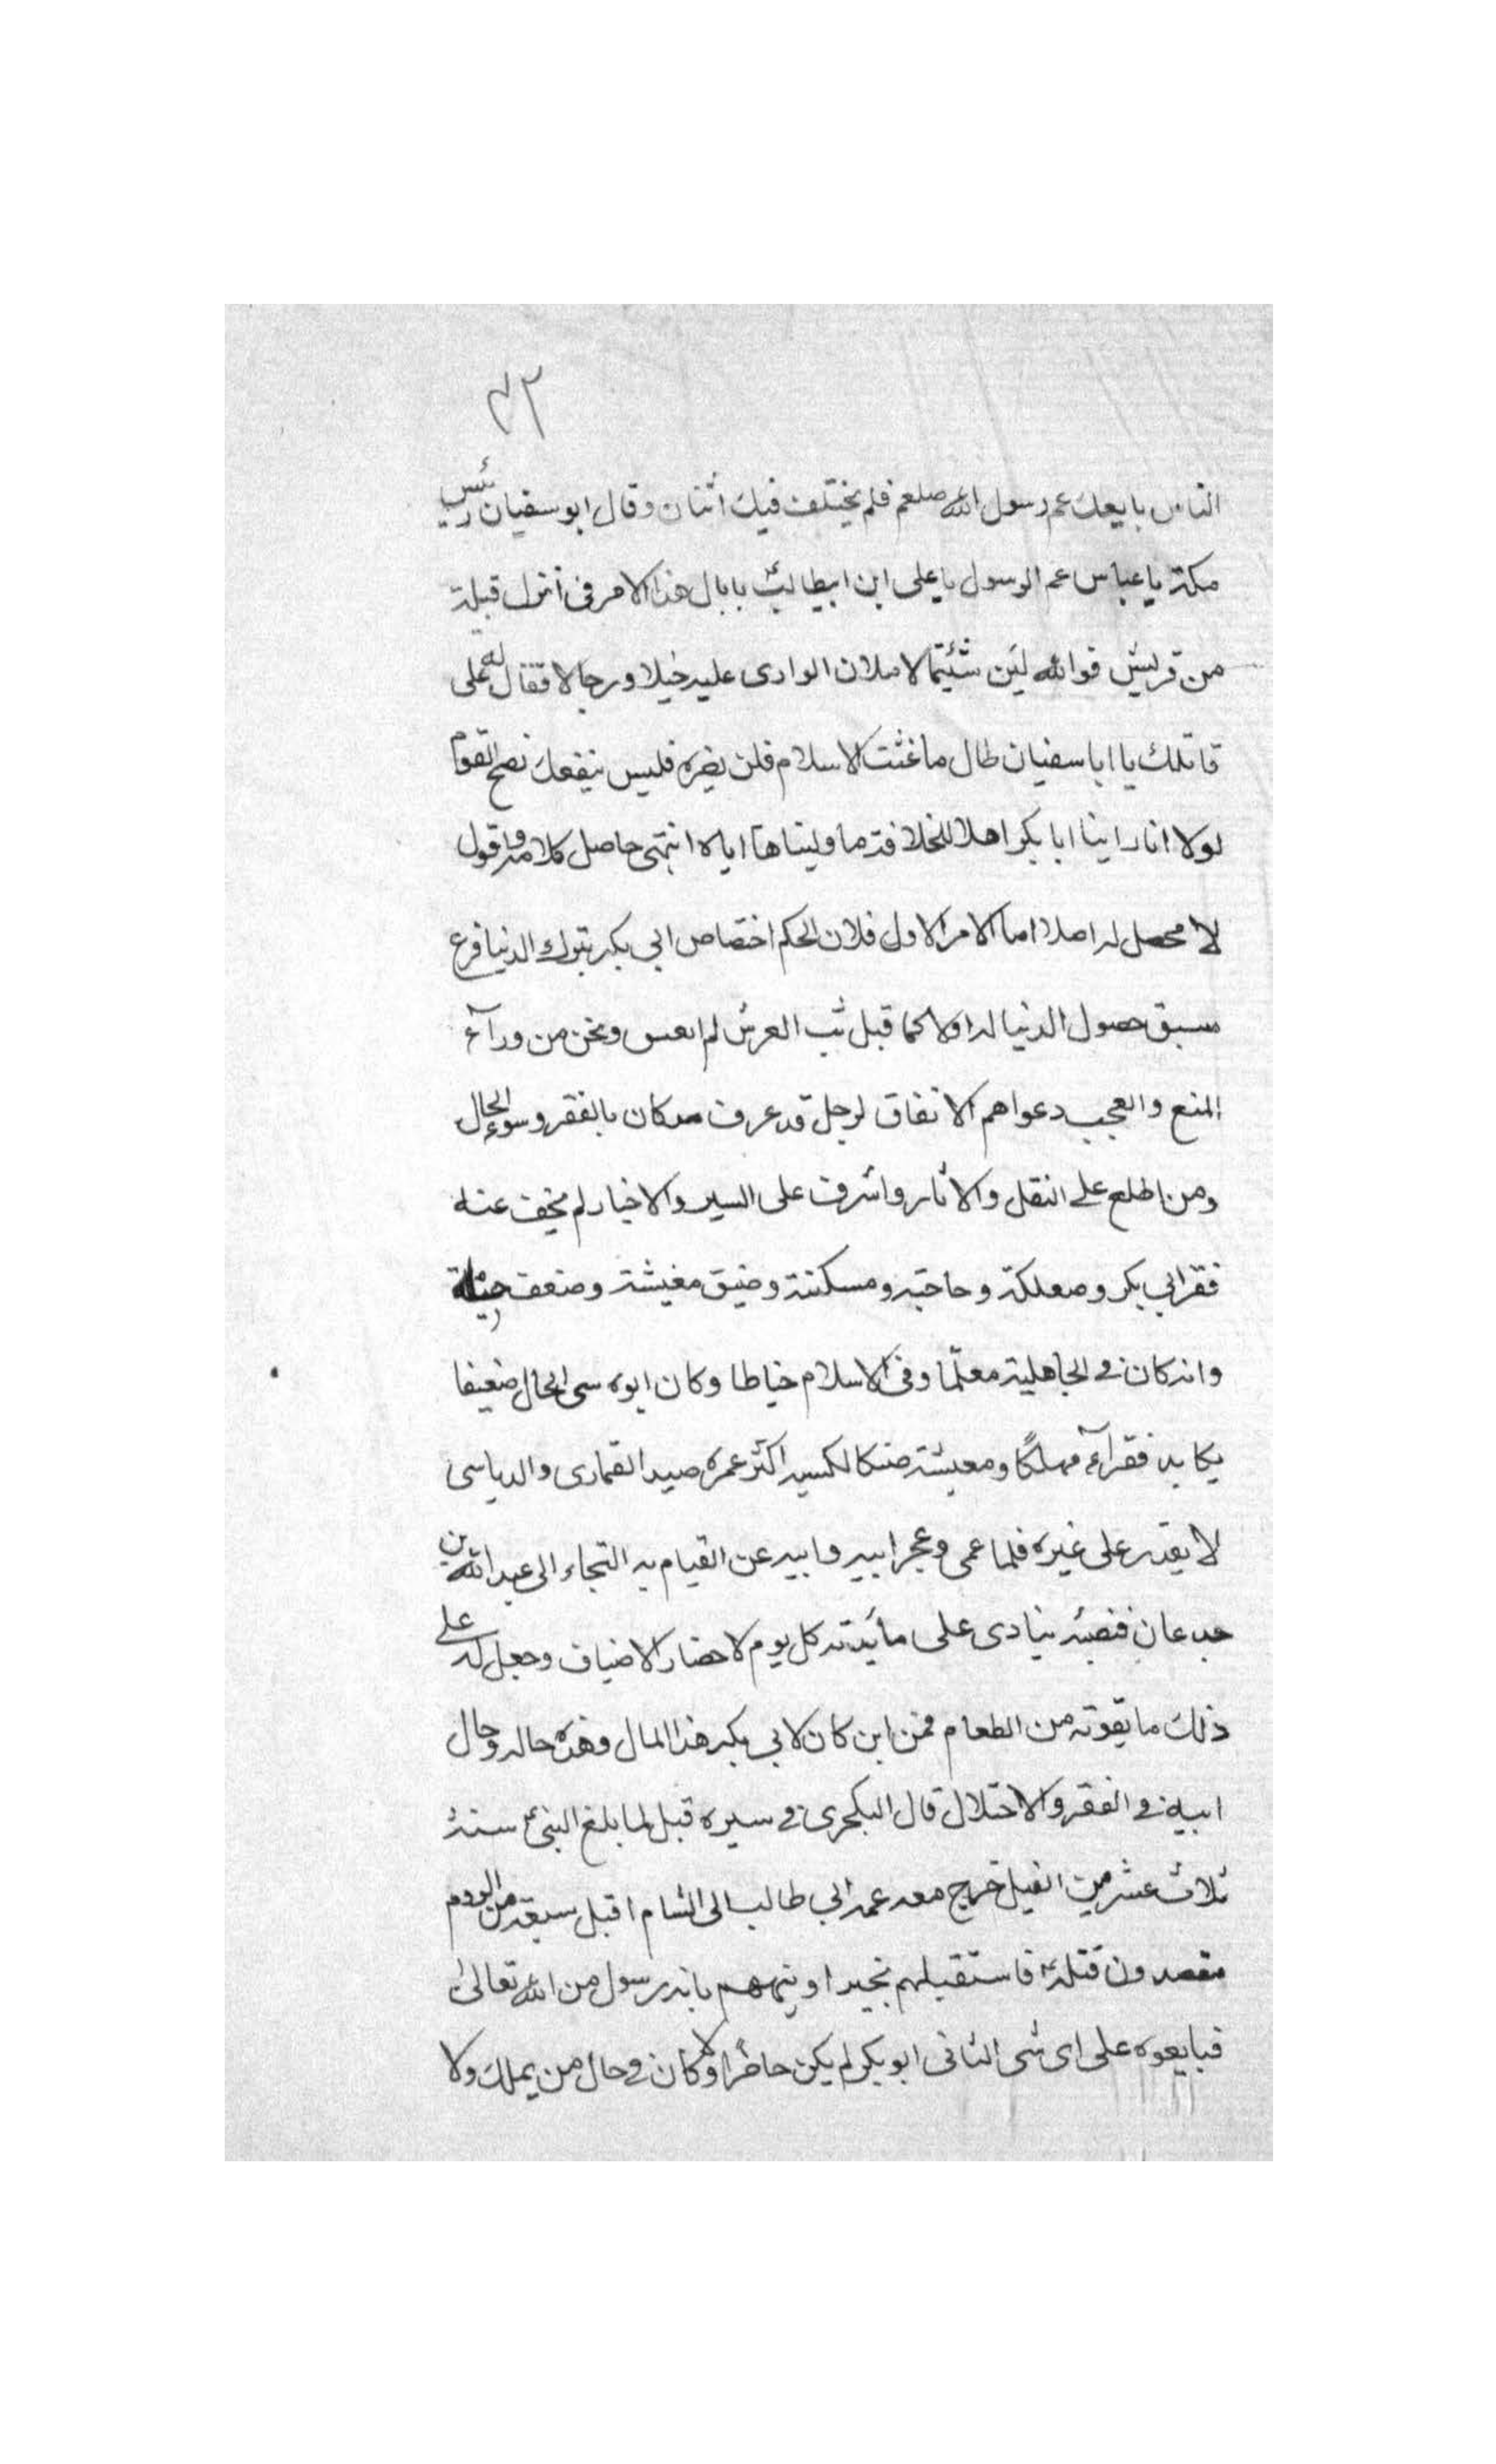 ٣٢
الناس بايعك عم رسول الله صلعم فلم يختلف فيك اثنان وقال ابو سفيان رئيس
مكة يا عباس عم الرسول يا علي ابن ابيطالب ع بابال هذا الامر في انزل قبيلة
من قريش فوالله لئن شئتما لاملان الوادى عليه خيلا ورجالا فقال له على
قاتلك يا ابا سفيان طال ما غششت الاسلام فلن يضره فليس ينفعك نصح القوم
لولا انا راينا ابا بكر اهلا للخلافة ما وليناها اياه انتهى حاصل كلامه واقول
لا محصل له اصلا اما الامر الاول فلان الحكم اختصاص ابي بكر بترك الدنيا فرع
مسبق حصول الدنيا له اولا كما قيل ثبت العرش ثم انقش ونحن من ورآء
المنع والعجب دعواهم الانفاق لرجل قد عرف مذ كان بالفقر وسوء الحال
ومن اطلع على النقل والاثار واشرف على السير والاخبار لم يخف عنه
فقر ابي بكر وصعلكته وحاجته ومسكنته وضيق معيشته وضعف حيلته
وانه كان في الجاهلية معلّما وفي الاسلام خياطا وكان ابوه سي الحال ضعيفا
يكابد فقرآء مهلكًا ومعيشة ضنكا لكسبه اكثر عمره صيد القمارى والدباسى
لا يقدر على غيره فلما عمى وعجز ابيه وابيه عن القيام به التجاء الى عبد الله بن
جدعان فنصبه ينادى على مائدته كل يوم لاحضار الاضياف وجعل له على
ذلك ما يقوته من الطعام فمن اين كان لابي بكر هذا المال وهذه حاله وحال
ابيه في الفقر والاختلال قال البكجرى في سيره قبل لما بلغ النبي ع سنة
ثلاث عشر من الفيل خرج معه عمه ابي طالب الى الشام اقبل سبعة من الروم
يقصدون قتله ع فاستقبلهم بحيرا ونبههم بانه رسول من الله تعالى
فبايعوه على اى شى الثانى ابو بكر لم يكن حاضرا ولا كان في حال من يملك ولا